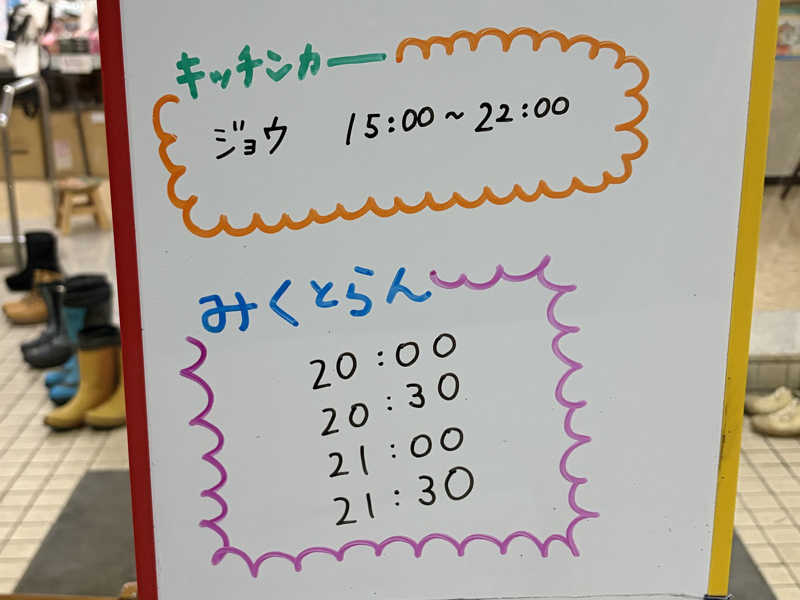 キッチンカー
ジョウ 15:00~22:00
みくとらん
20:00
20:30
21:00
21:30